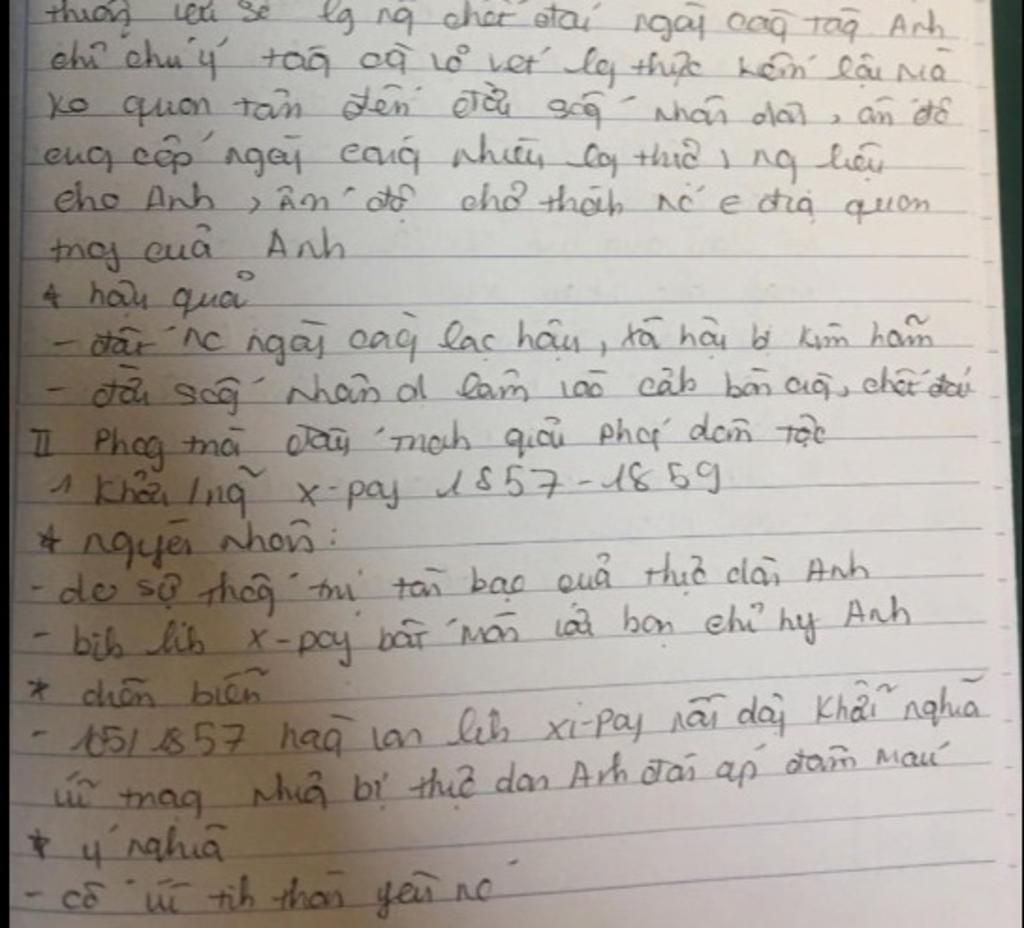 số lg ng chết đói ngày càg tăg Anh
chỉ chú ý tăg cg vơ vét lg thực kém lâu mà
ko quan tâm đến đời sốg nhân dân, ấn độ
cug cấp ngày càng nhiều lg thực, ng liệu
cho Anh, ấn độ trở thành nc quan
trọg của Anh
* hậu quả
- đất nc ngày càg lạc hậu, xã hội bị kìm hãm
- đời sốg nhân d lâm vào cảh bần cùg, chết đói
II Phog trào đấu trah giải phóg dân tộc
1 Khởi ngĩ x-pay 1857-1859
* nguyên nhân:
- do sự thốg trị tàn bạo của thực dân Anh
- bih líh x-pay bất mãn với bọn chỉ huy Anh
* diễn biến
- 1857 hàg vạn líh xi-pay nổi dậy khởi nghĩa
vũ trag nhưg bị thực dân Anh đàn áp đẫm máu
* ý nghĩa
- có tih thần yêu nc